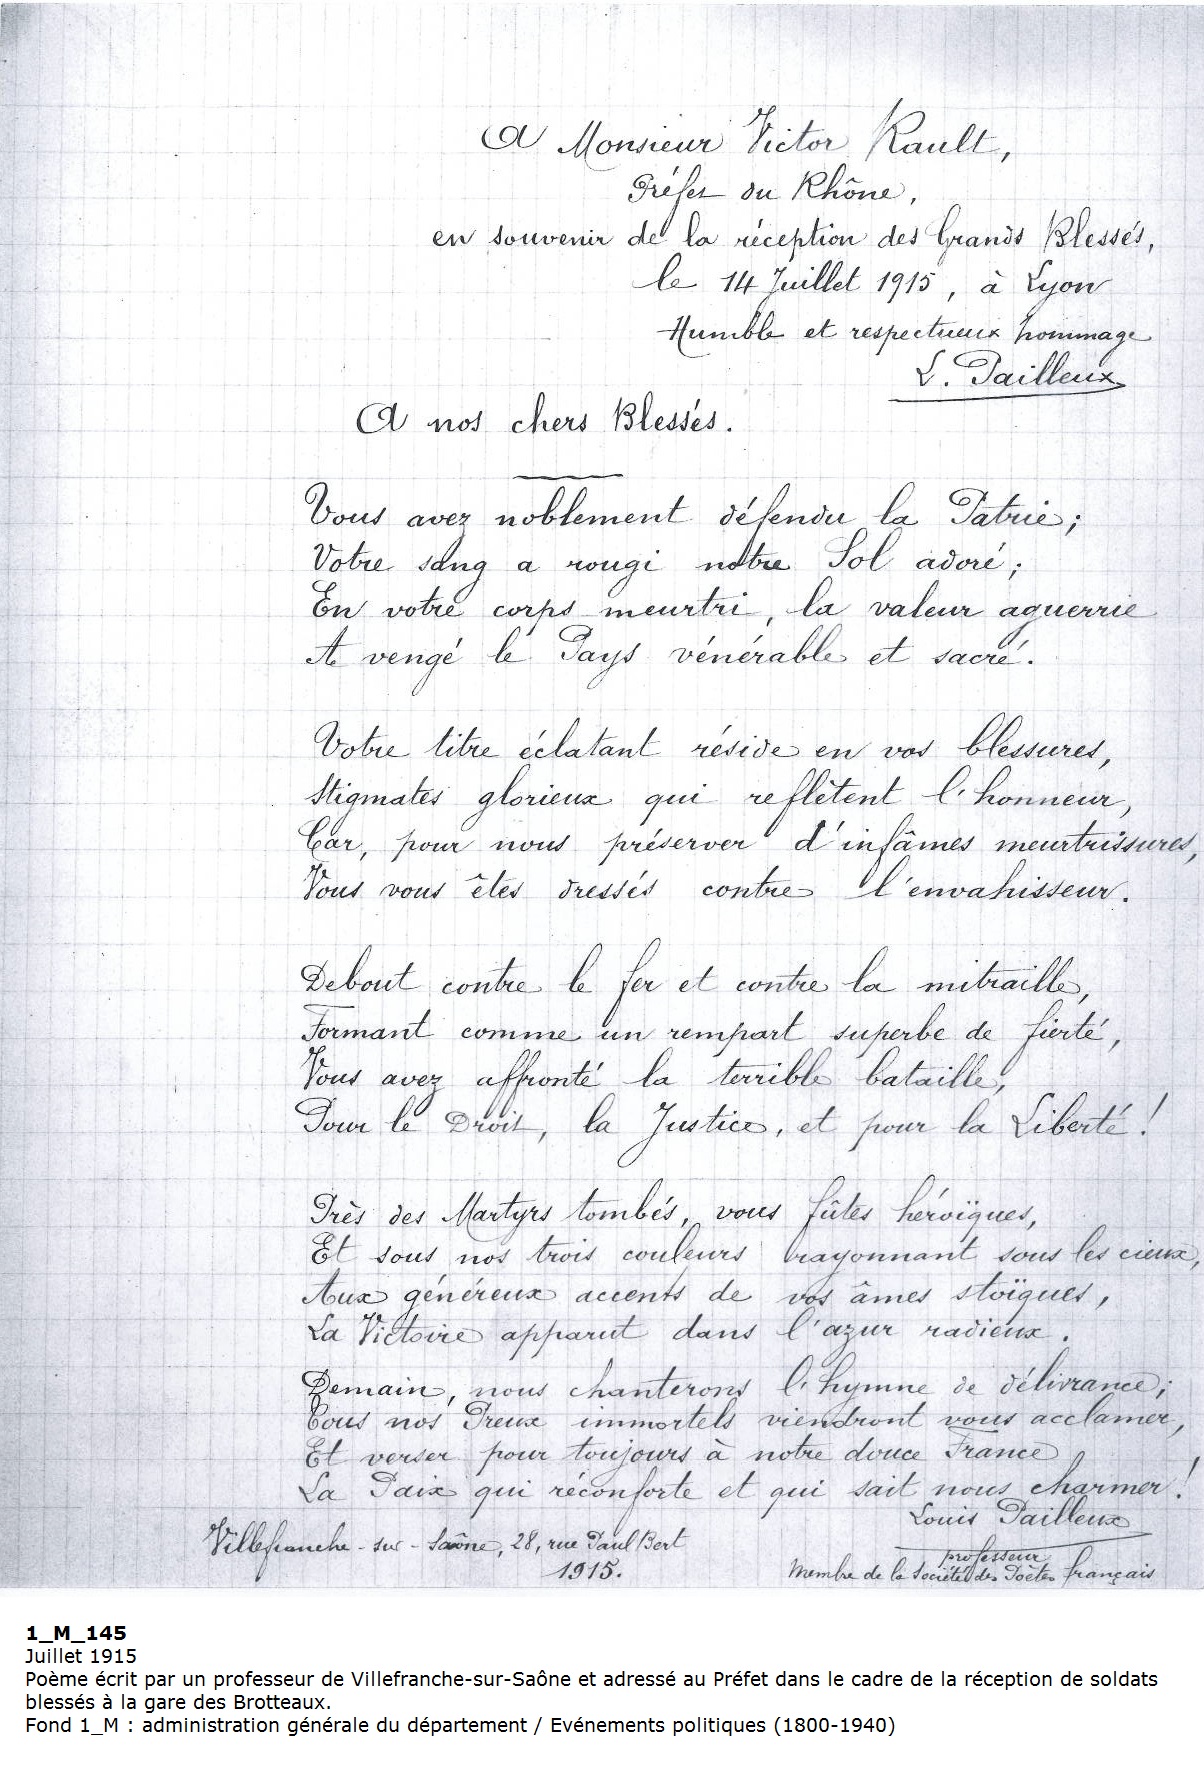 A Monsieur Victor Rault,
Préfet du Rhône,
en souvenir de la réception des Grands Blessés,
le 14 Juillet 1915, à Lyon
Humble et respectueux hommage
L. Pailleux
A nos chers Blessés.
Vous avez noblement défendu la Patrie ;
Votre sang a rougi notre Sol adoré ;
En votre corps meurtri, la valeur aguerrie
A vengé le Pays vénérable et sacré.
Votre titre éclatant réside en vos blessures,
Stigmates glorieux qui reflètent l'honneur,
Car, pour nous préserver d'infâmes meurtrissures,
Vous vous êtes dressés contre l'envahisseur.
Debout contre le fer et contre la mitraille,
Formant comme un rempart superbe de fierté,
Vous avez affronté la terrible bataille,
Pour le Droit, la Justice, et pour la Liberté !
Près des Martyrs tombés, vous fûtes héroïques,
Et sous nos trois couleurs rayonnant sous les cieux,
Aux généreux accents de vos âmes stoïques,
La Victoire apparut dans l'azur radieux.
Demain, nous chanterons l'hymne de délivrance ;
Tous nos Preux immortels viendront vous acclamer,
Et verser pour toujours à notre douce France
La Paix qui réconforte et qui sait nous charmer !
Louis Pailleux
Villefranche-sur-Saône, 28, rue Paul Bert
professeur
1915.
Membre de la Société des Poètes français
1_M_145
Juillet 1915
Poème écrit par un professeur de Villefranche-sur-Saône et adressé au Préfet dans le cadre de la réception de soldats
blessés à la gare des Brotteaux.
Fond 1_M : administration générale du département / Evénements politiques (1800-1940)